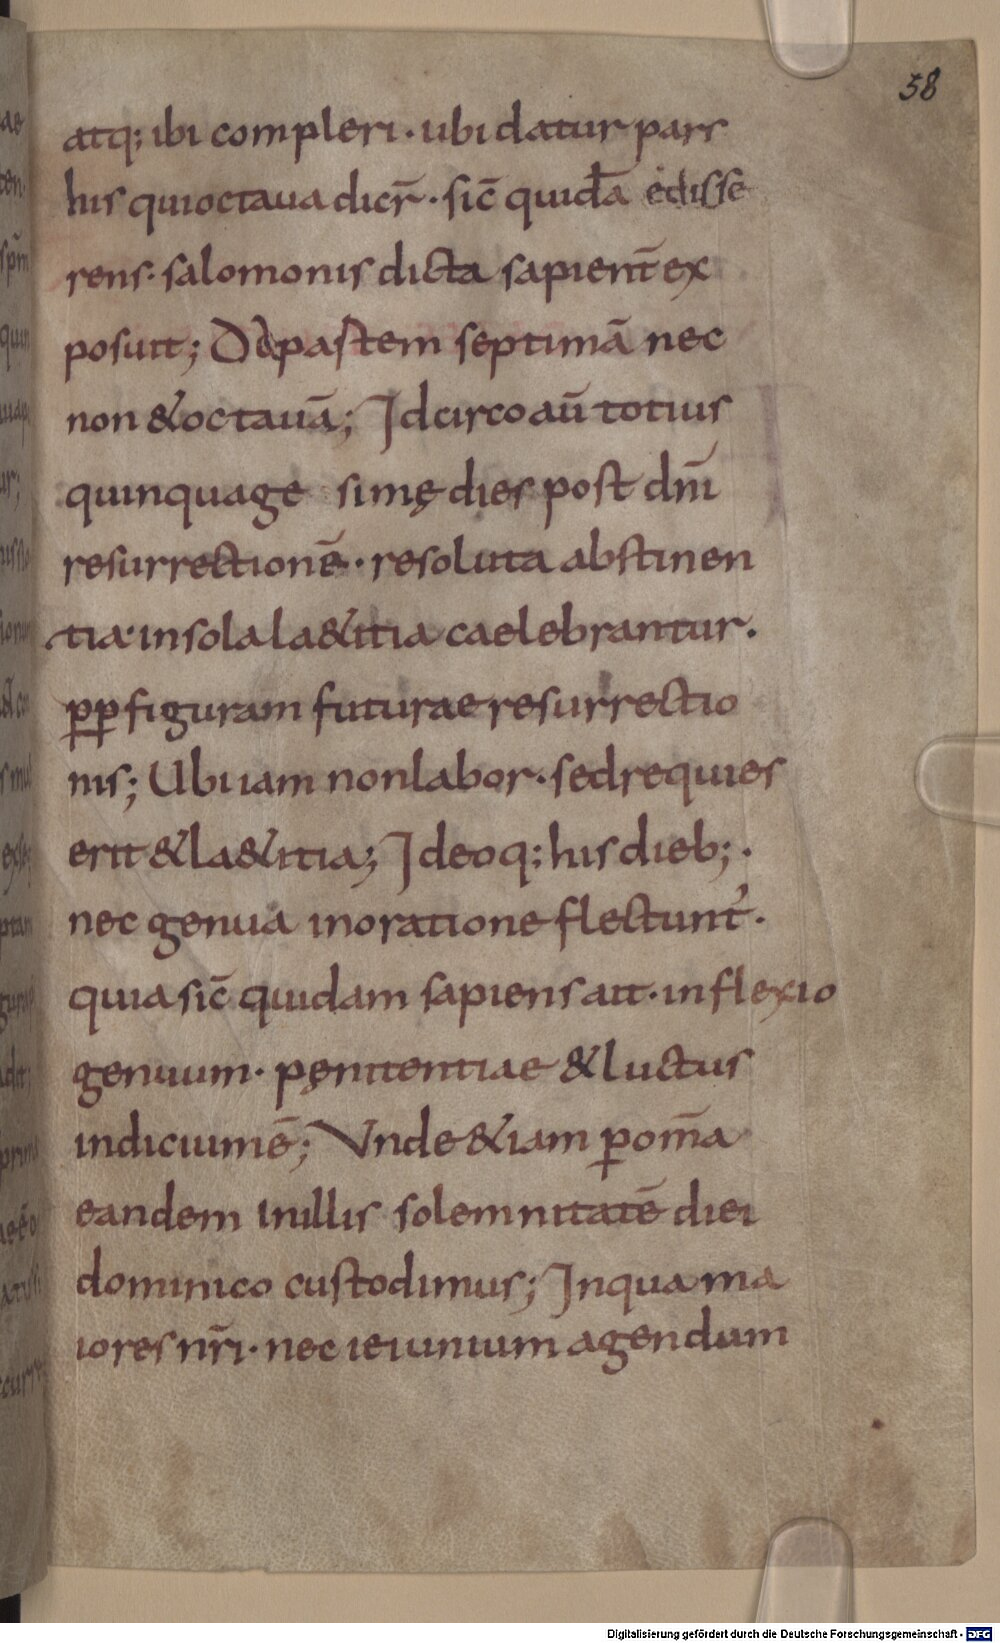 58
atq; ibi compleri · ubi datur pars
his qui octaua dicr̄ · sic̄ quidā edisse
rens · salomonis dicta sapient̄ ex
posuit; D&partem septimā nec
non & octauā; Idcirco aū totius
quinquage simę dies post dnī
resurrectionē · resoluta abstinen
tia · in sola la&itia caelebrantur ·
p̱p̱ figuram futurae resurrectio
nis; Ubi iam non labor · sed requies
erit & la&itia; Ideoq; his dieb; ·
nec genua in oratione flectunt̓ ·
quia sic̄ quidam sapiens ait · inflexio
genuum · pęnitentiae & luctus
indicium ē; Unde &iam ꝑ om̄a
eandem in illis solemnitatē diei
dominico custodimus; In qua ma
iores nr̄i · nec ieiunium agendum
Digitalisierung gefördert durch die Deutsche Forschungsgemeinschaft - DFG